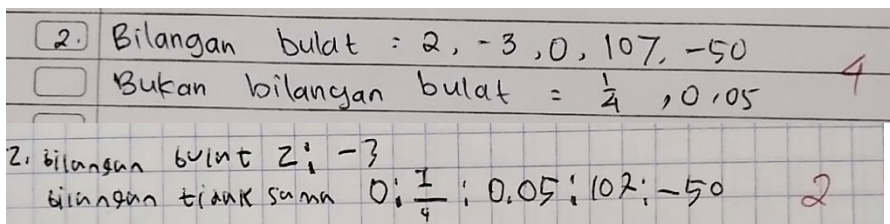 2. Bilangan bulat : 2, -3, 0, 107, -50
Bukan bilangan bulat = 1/4, 0,05 4
2. bilangan bulat 2; -3
bilangan tidak sama 0; 1/4; 0.05; 107; -50 2